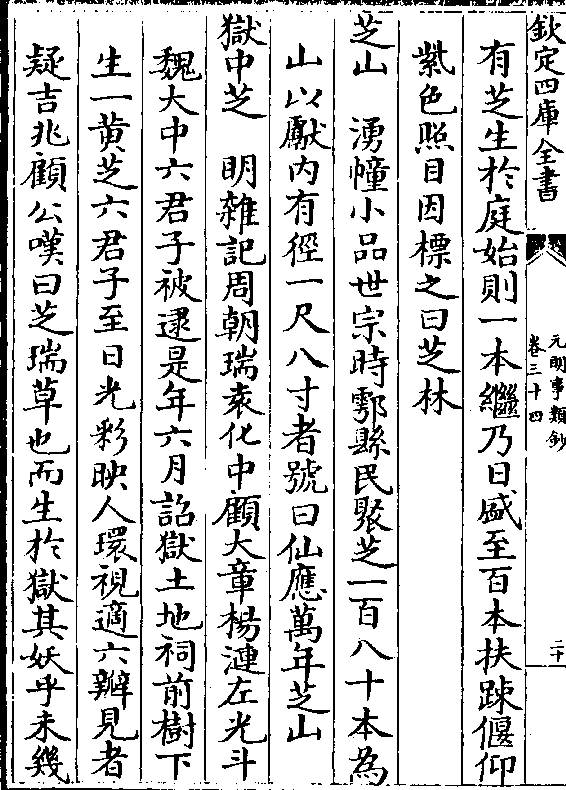 欽定四庫全書
元明事類鈔
卷三十四
二十
有芝生於庭始則一本繼乃日盛至百本扶踈偃仰
紫色照目因標之曰芝林
芝山　湧幢小品世宗時鄠縣民聚芝一百八十本為
山以獻内有徑一尺八寸者號曰仙應萬年芝山
獄中芝　明雜記周朝瑞袁化中顧大章楊漣左光斗
魏大中六君子被逮是年六月詔獄土地祠前樹下
生一黄芝六君子至日光彩映人環視適六瓣見者
疑吉兆顧公嘆曰芝瑞草也而生於獄其妖乎未幾